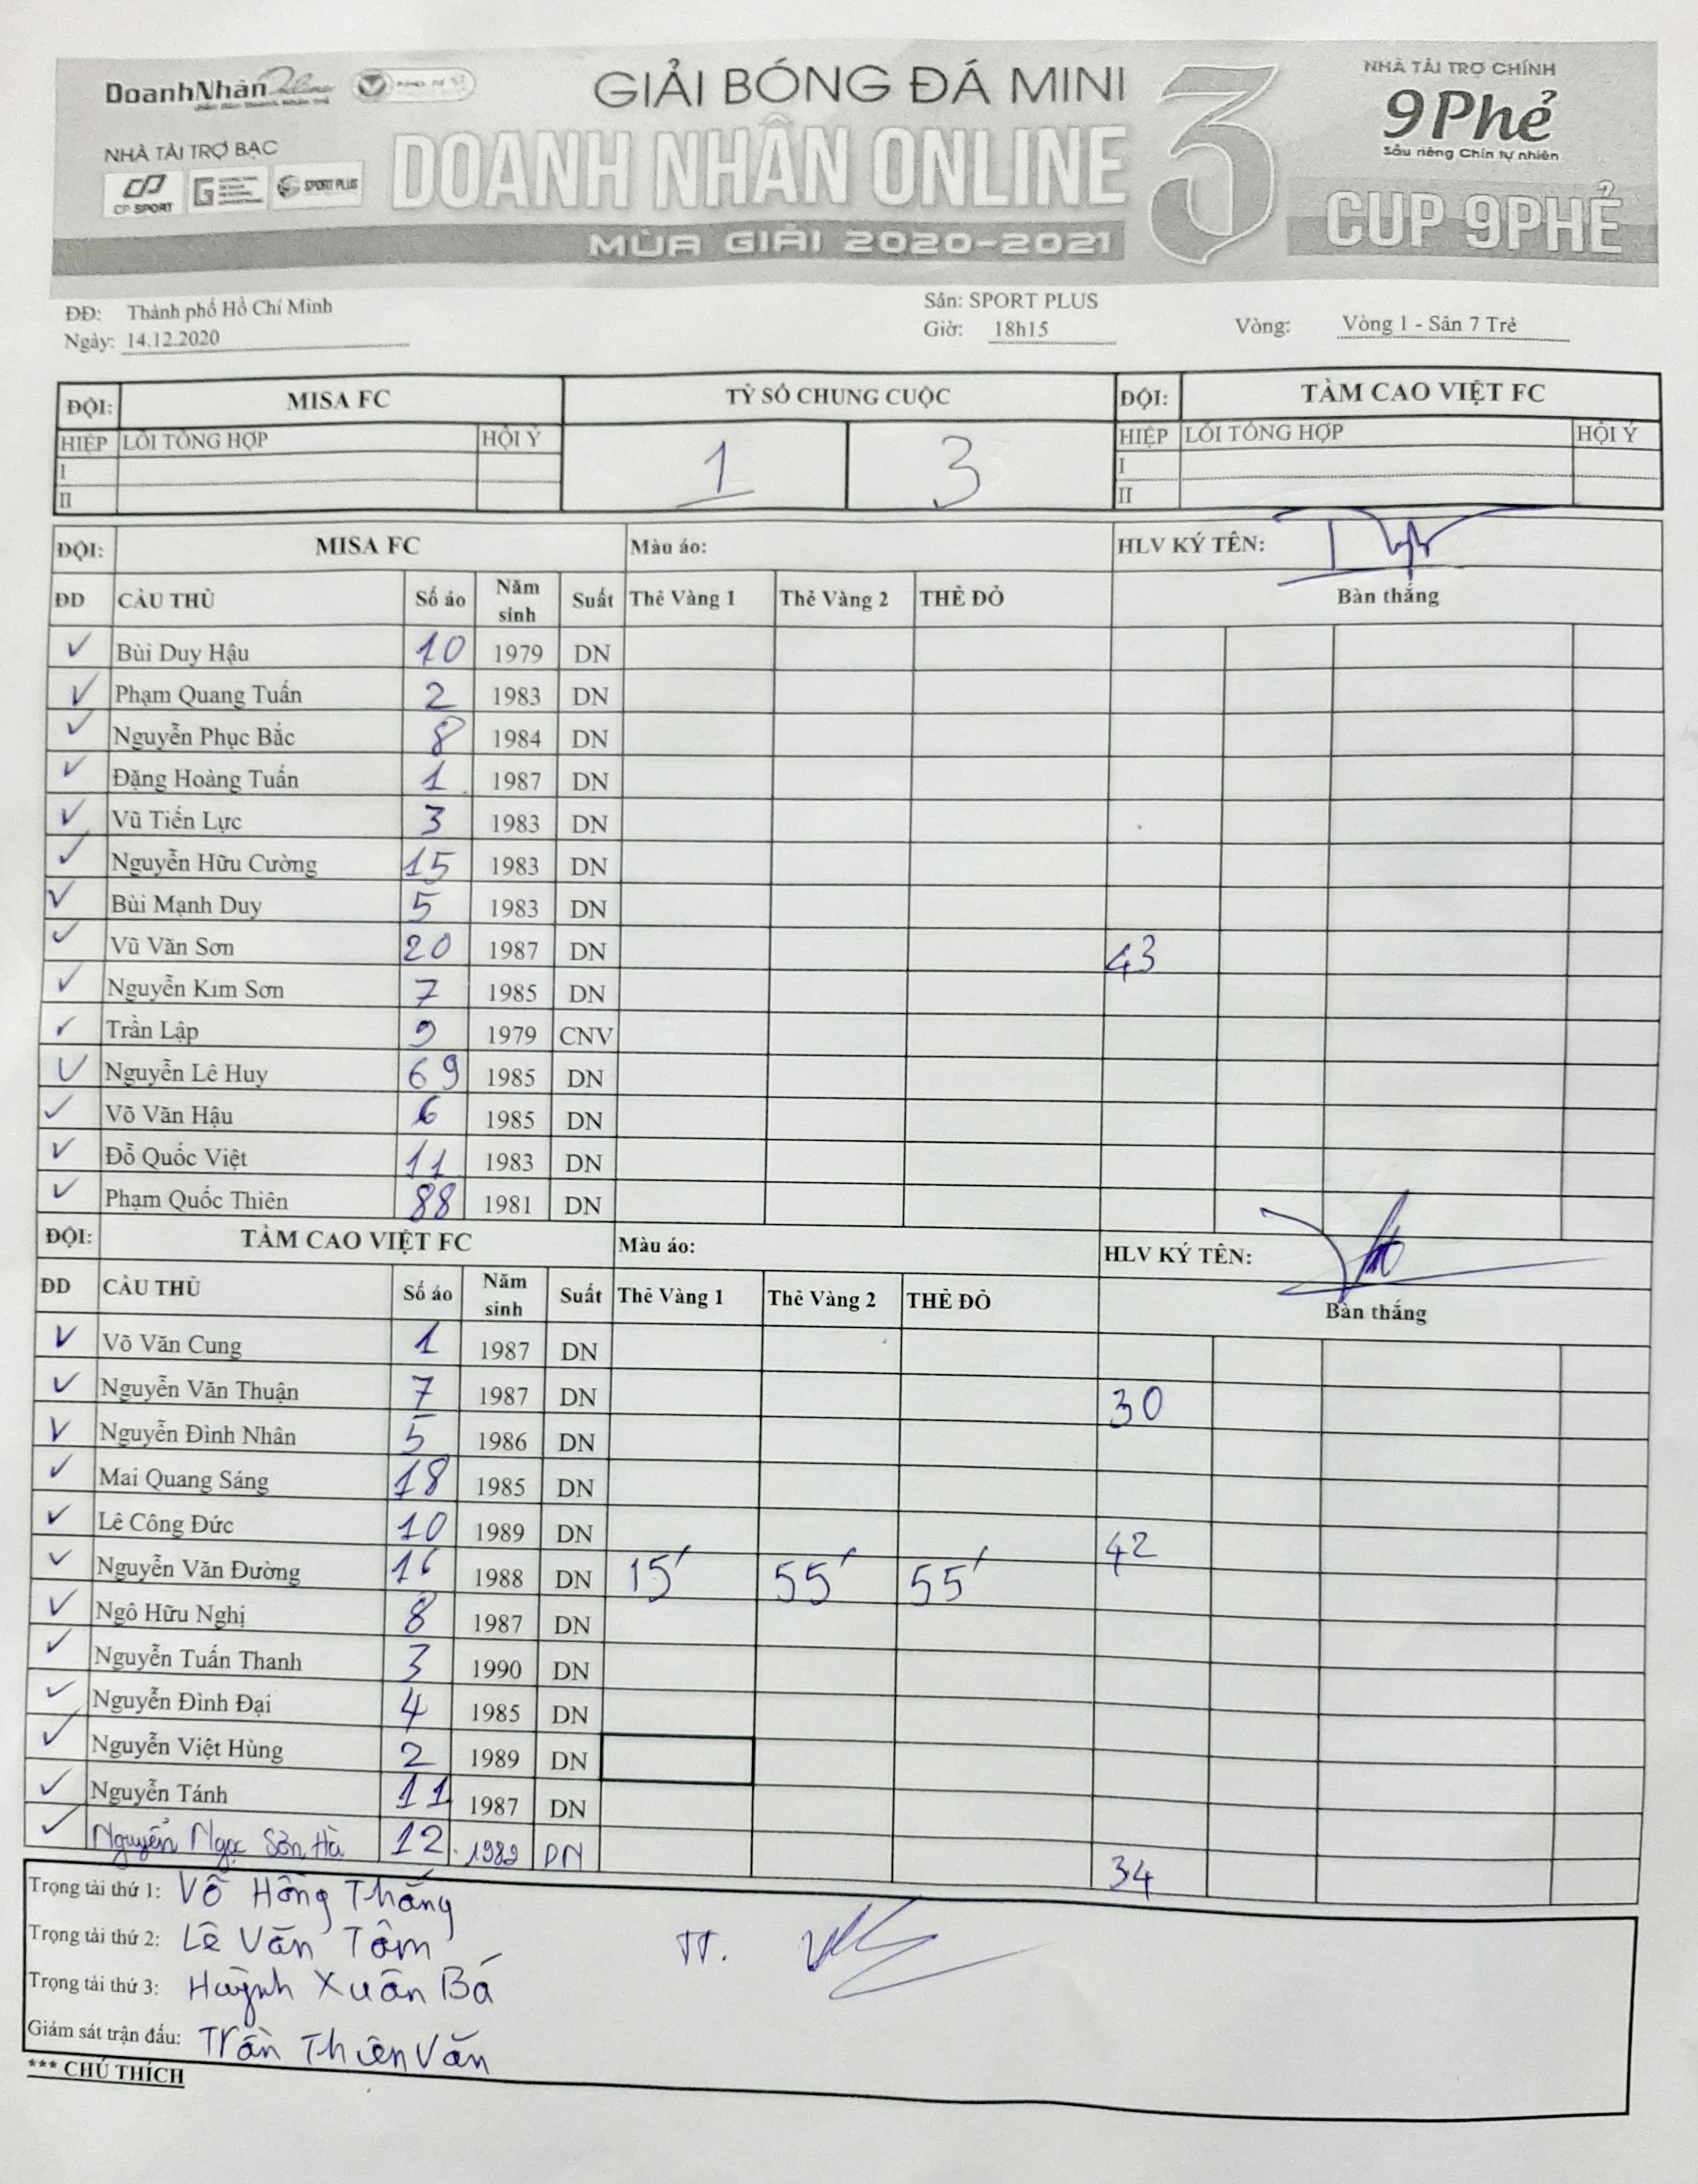 DoanhNhân Online
GIẢI BÓNG ĐÁ MINI
DOANH NHÂN ONLINE
3
MÙA GIẢI 2020-2021
NHÀ TÀI TRỢ BẠC
CP SPORT
SPORT PLUS
NHÀ TÀI TRỢ CHÍNH
9Phẻ
Sầu riêng Chín tự nhiên
CUP 9PHẺ
ĐĐ: Thành phố Hồ Chí Minh Sân: SPORT PLUS
Ngày: 14.12.2020 Giờ: 18h15 Vòng: Vòng 1 - Sân 7 Trẻ
ĐỘI: MISA FC TỶ SỐ CHUNG CUỘC ĐỘI: TẦM CAO VIỆT FC
HIỆP LỖI TỔNG HỢP HỘI Ý 1 3 HIỆP LỖI TỔNG HỢP HỘI Ý
I I
II II
ĐỘI: MISA FC Màu áo: HLV KÝ TÊN:
ĐD CẦU THỦ Số áo Năm sinh Suất Thẻ Vàng 1 Thẻ Vàng 2 THẺ ĐỎ Bàn thắng
✓ Bùi Duy Hậu 10 1979 DN
✓ Phạm Quang Tuấn 2 1983 DN
✓ Nguyễn Phục Bắc 8 1984 DN
✓ Đặng Hoàng Tuấn 1 1987 DN
✓ Vũ Tiến Lực 3 1983 DN
✓ Nguyễn Hữu Cường 15 1983 DN
✓ Bùi Mạnh Duy 5 1983 DN
✓ Vũ Văn Sơn 20 1987 DN 43
✓ Nguyễn Kim Sơn 7 1985 DN
✓ Trần Lập 9 1979 CNV
✓ Nguyễn Lê Huy 69 1985 DN
✓ Võ Văn Hậu 6 1985 DN
✓ Đỗ Quốc Việt 11 1983 DN
✓ Phạm Quốc Thiên 88 1981 DN
ĐỘI: TẦM CAO VIỆT FC Màu áo: HLV KÝ TÊN:
ĐD CẦU THỦ Số áo Năm sinh Suất Thẻ Vàng 1 Thẻ Vàng 2 THẺ ĐỎ Bàn thắng
✓ Võ Văn Cung 1 1987 DN
✓ Nguyễn Văn Thuận 7 1987 DN 30
✓ Nguyễn Đình Nhân 5 1986 DN
✓ Mai Quang Sáng 18 1985 DN
✓ Lê Công Đức 10 1989 DN 42
✓ Nguyễn Văn Đường 16 1988 DN 15' 55' 55'
✓ Ngô Hữu Nghị 8 1987 DN
✓ Nguyễn Tuấn Thanh 3 1990 DN
✓ Nguyễn Đình Đại 4 1985 DN
✓ Nguyễn Việt Hùng 2 1989 DN
✓ Nguyễn Tánh 11 1987 DN
✓ Nguyễn Ngọc Sơn Hà 12 1989 DN 34
Trọng tài thứ 1: Võ Hồng Thắng
Trọng tài thứ 2: Lê Văn Tâm TT.
Trọng tài thứ 3: Huỳnh Xuân Bá
Giám sát trận đấu: Trần Thiên Văn
*** CHÚ THÍCH